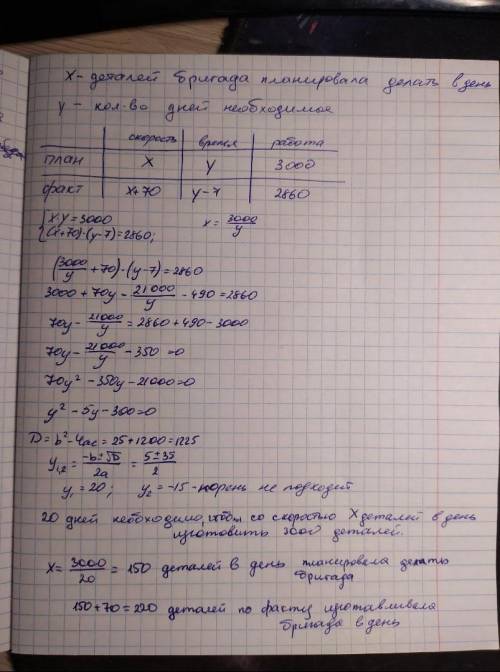 X - деталей бригада планировала делать в день
y - кол-во дней необходимое
скорость время работа
план X y 3000
факт x+70 y-7 2860
{x·y=3000 x = 3000/y
(x+70)·(y-7)=2860;
(3000/y +70)·(y-7)=2860
3000 + 70y - 21000/y - 490 = 2860
70y - 21000/y = 2860 + 490 - 3000
70y - 21000/y - 350 = 0
70y² - 350y - 21000 = 0
y² - 5y - 300 = 0
D = b² - 4ac = 25 + 1200 = 1225
y₁,₂ = (-b ± √D)/2a = (5 ± 35)/2
y₁ = 20; y₂ = -15 - корень не подходит
20 дней необходимо, чтобы со скоростью X деталей в день
изготовить 3000 деталей.
X = 3000/20 = 150 деталей в день планировала делать
бригада
150+70 = 220 деталей по факту изготавливала
бригада в день